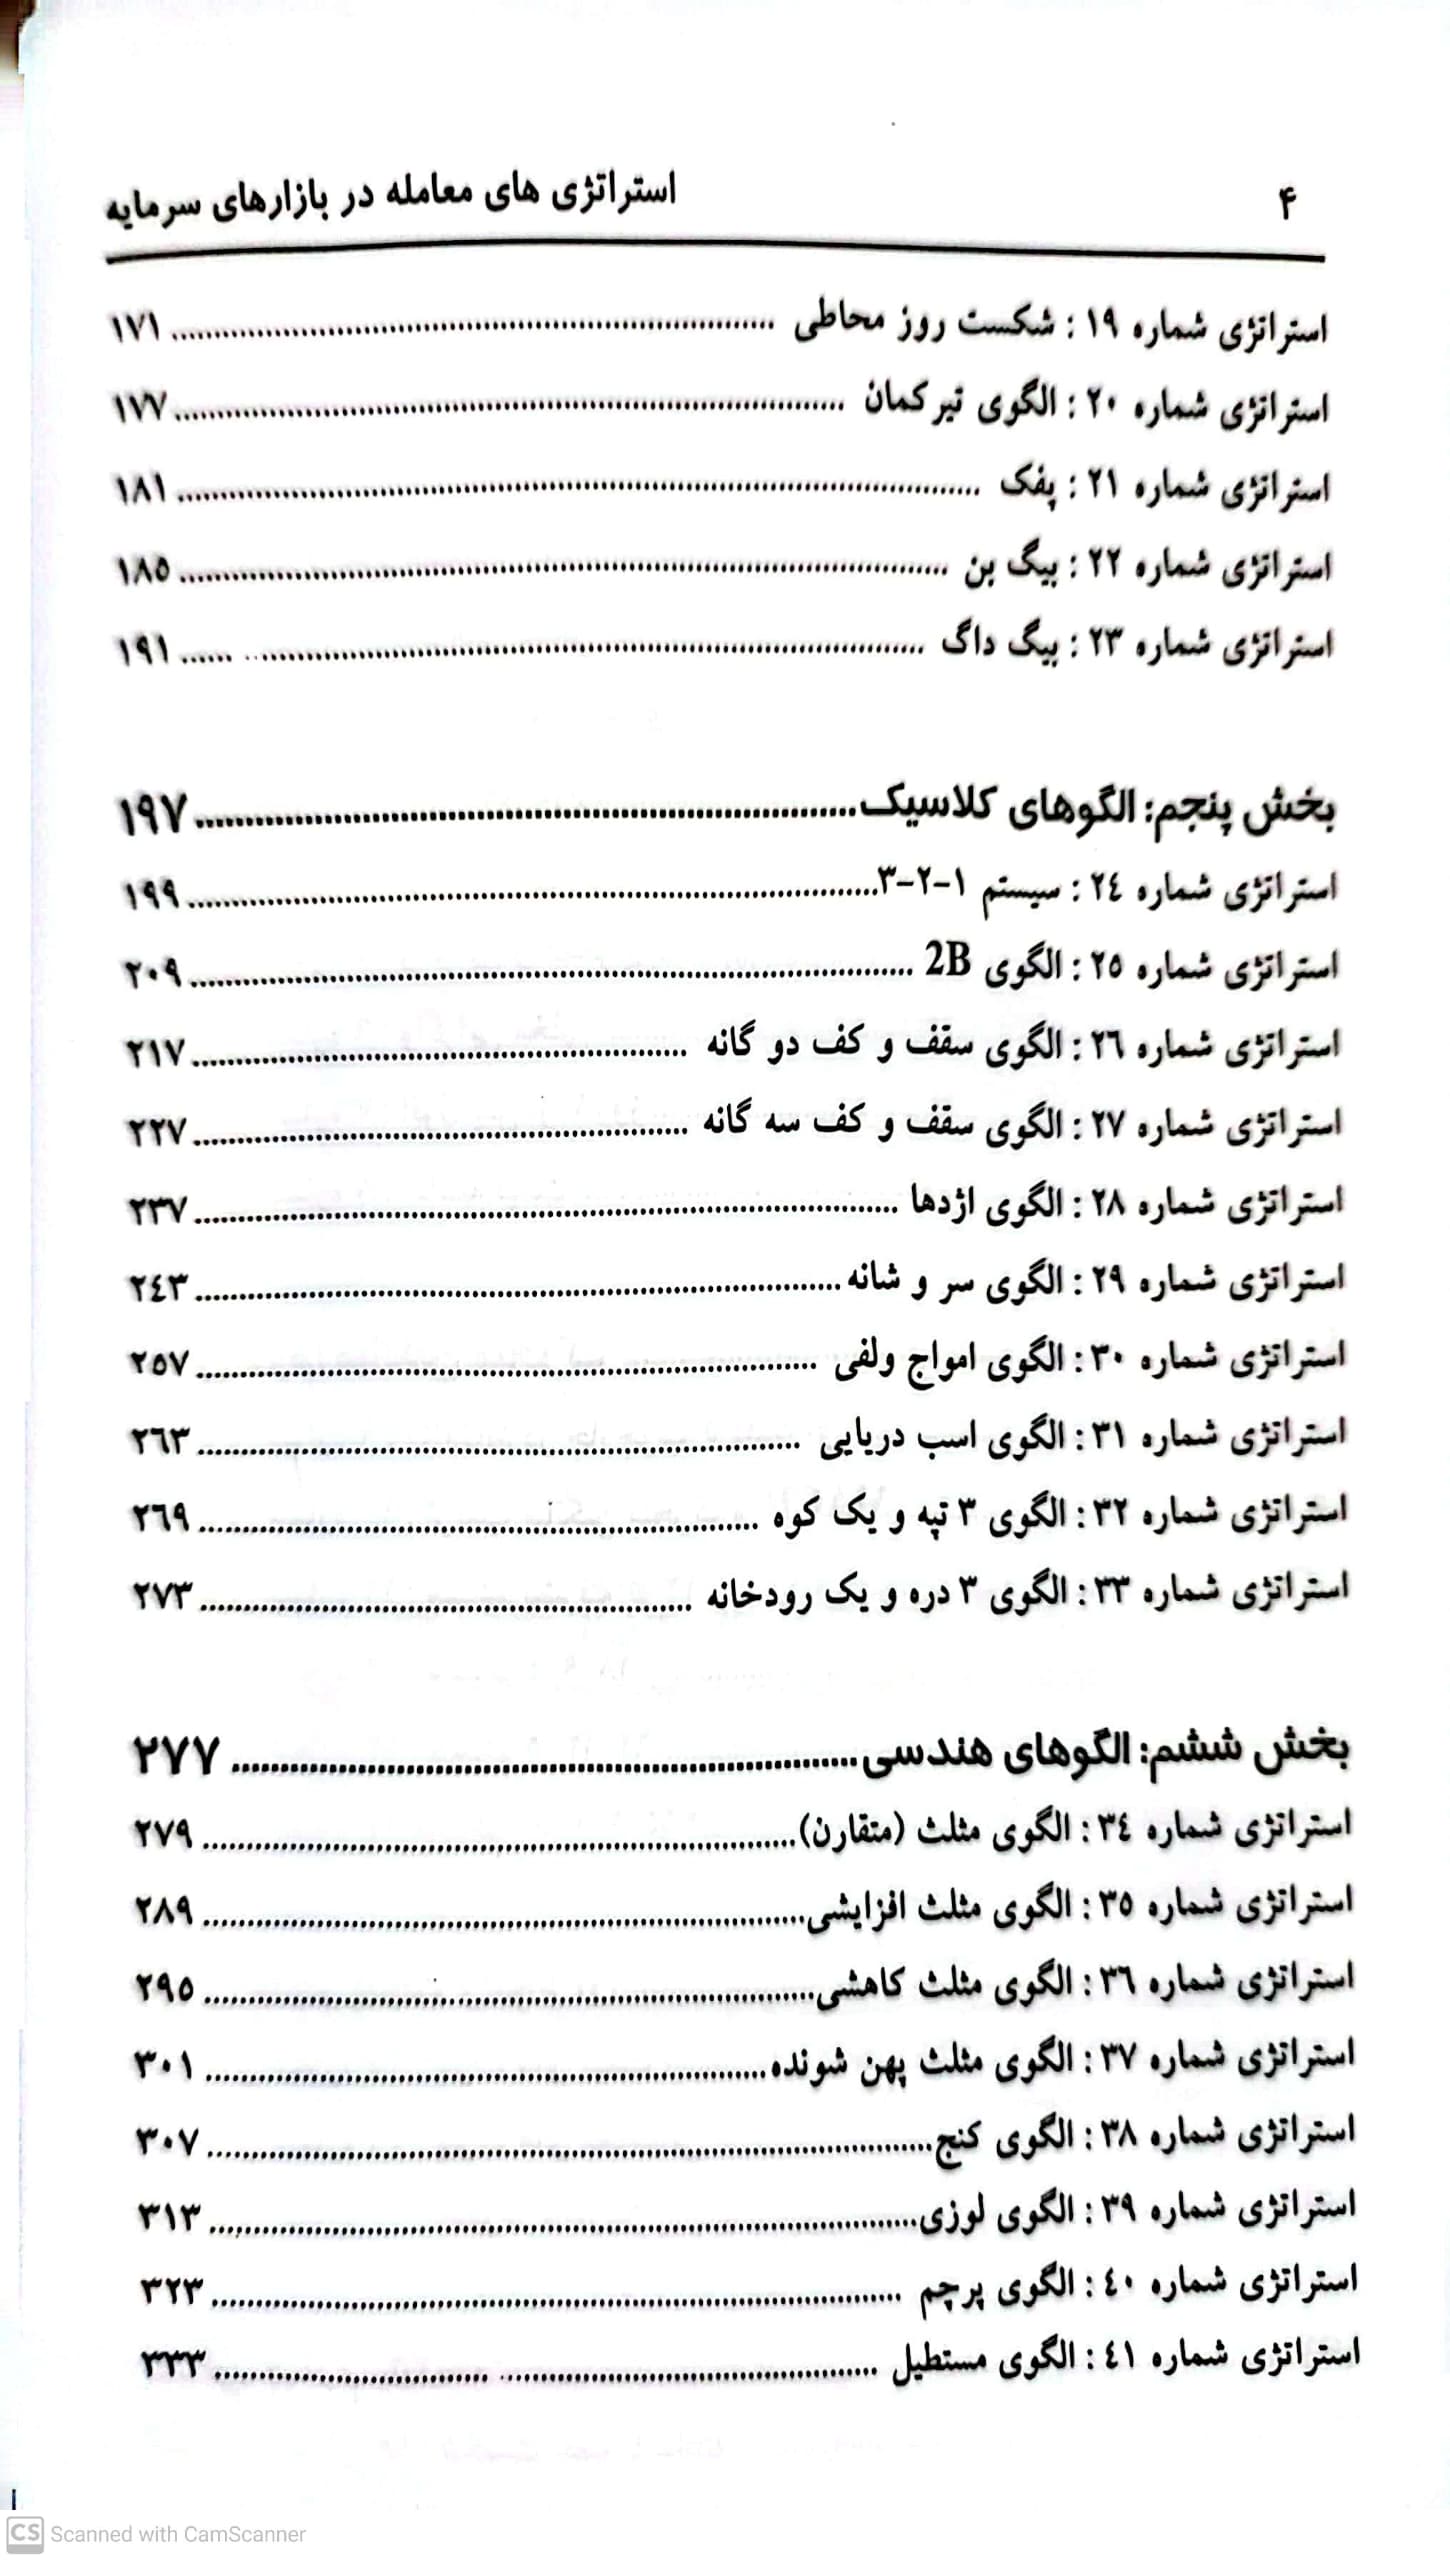 ۴ استراتژی های معامله در بازارهای سرمایه
استراتژی شماره ۱۹ : شکست روز محاطی ........ ۱۷۱
استراتژی شماره ۲۰ : الگوی تیر کمان ........ ۱۷۷
استراتژی شماره ۲۱ : پفک ........ ۱۸۱
استراتژی شماره ۲۲ : بیگ بن ........ ۱۸٥
استراتژی شماره ۲۳ : بیگ داگ ........ ۱۹۱
بخش پنجم: الگوهای کلاسیک ........ ۱۹۷
استراتژی شماره ۲٤ : سیستم ۱-۲-۳ ........ ۱۹۹
استراتژی شماره ۲٥ : الگوی 2B ........ ۲۰۹
استراتژی شماره ۲٦ : الگوی سقف و کف دو گانه ........ ۲۱۷
استراتژی شماره ۲۷ : الگوی سقف و کف سه گانه ........ ۲۲۷
استراتژی شماره ۲۸ : الگوی اژدها ........ ۲۳۷
استراتژی شماره ۲۹ : الگوی سر و شانه ........ ۲٤۳
استراتژی شماره ۳۰ : الگوی امواج ولفی ........ ۲٥۷
استراتژی شماره ۳۱ : الگوی اسب دریایی ........ ۲٦۳
استراتژی شماره ۳۲ : الگوی ۳ تپه و یک کوه ........ ۲٦۹
استراتژی شماره ۳۳ : الگوی ۳ دره و یک رودخانه ........ ۲۷۳
بخش ششم: الگوهای هندسی ........ ۲۷۷
استراتژی شماره ۳٤ : الگوی مثلث (متقارن) ........ ۲۷۹
استراتژی شماره ۳٥ : الگوی مثلث افزایشی ........ ۲۸۹
استراتژی شماره ۳٦ : الگوی مثلث کاهشی ........ ۲۹٥
استراتژی شماره ۳۷ : الگوی مثلث پهن شونده ........ ۳۰۱
استراتژی شماره ۳۸ : الگوی کنج ........ ۳۰۷
استراتژی شماره ۳۹ : الگوی لوزی ........ ۳۱۳
استراتژی شماره ٤۰ : الگوی پرچم ........ ۳۲۳
استراتژی شماره ٤۱ : الگوی مستطیل ........ ۳۳۳
CS Scanned with CamScanner